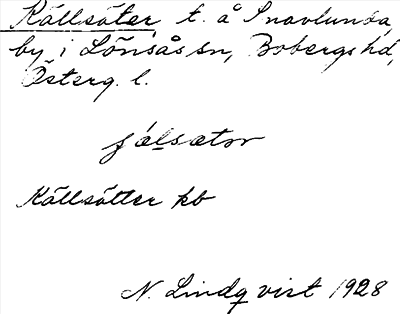 Källsäter t. å Snavlunda,
by i Lönsås sn, Bobergs hd,
Österg. l.
ɟälsætər
Källsätter kb
N. Lindqvist 1928